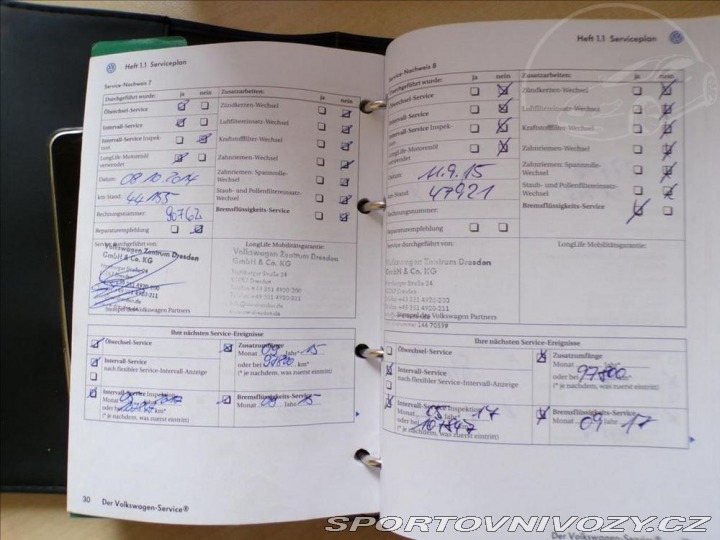 Heft 1.1 Serviceplan
Service-Nachweis 7
Durchgeführt wurde: ja nein
Ölwechsel-Service
Intervall-Service
Intervall-Service Inspek-
tion
LongLife-Motorenöl
verwendet
Datum: 08.10.2014
km-Stand: 44155
Rechnungsnummer: 90762
Reparaturempfehlung
Zusatzarbeiten: ja nein
Zündkerzen-Wechsel
Luftfiltereinsatz-Wechsel
Kraftstofffilter-Wechsel
Zahnriemen-Wechsel
Zahnriemen: Spannrolle-
Wechsel
Staub- und Pollenfiltereinsatz-
Wechsel
Bremsflüssigkeits-Service
Service durchgeführt von:
Volkswagen Zentrum Dresden
GmbH & Co. KG
Stempel des Volkswagen Partners
LongLife Mobilitätsgarantie:
Volkswagen Zentrum Dresden
GmbH & Co. KG
Ihre nächsten Service-Ereignisse
Ölwechsel-Service
Intervall-Service
nach flexibler Service-Intervall-Anzeige
Intervall-Service Inspektion
Monat
oder bei km*
(* je nachdem, was zuerst eintritt)
Zusatzumfänge
Monat 09 Jahr* 15
oder bei km*
(* je nachdem, was zuerst eintritt)
Bremsflüssigkeits-Service
Monat 09 Jahr 15
30 Der Volkswagen-Service®
Heft 1.1 Serviceplan
Service-Nachweis 8
Durchgeführt wurde: ja nein
Ölwechsel-Service
Intervall-Service
Intervall-Service Inspek-
tion
LongLife-Motorenöl
verwendet
Datum: 11.9.15
km-Stand: 47921
Rechnungsnummer:
Reparaturempfehlung
Zusatzarbeiten: ja nein
Zündkerzen-Wechsel
Luftfiltereinsatz-Wechsel
Kraftstofffilter-Wechsel
Zahnriemen-Wechsel
Zahnriemen: Spannrolle-
Wechsel
Staub- und Pollenfiltereinsatz-
Wechsel
Bremsflüssigkeits-Service
Service durchgeführt von:
Volkswagen Zentrum Dresden
GmbH & Co. KG
Stempel des Volkswagen Partners
LongLife Mobilitätsgarantie:
Ihre nächsten Service-Ereignisse
Ölwechsel-Service
Intervall-Service
nach flexibler Service-Intervall-Anzeige
Intervall-Service Inspektion
Monat 17
oder bei
(* je nachdem, was zuerst eintritt)
Zusatzumfänge
Monat Jahr*
oder bei 97800 km*
(* je nachdem, was zuerst eintritt)
Bremsflüssigkeits-Service
Monat 09 Jahr 17
Der Volkswagen-Service®
SPORTOVNIVOZY.CZ